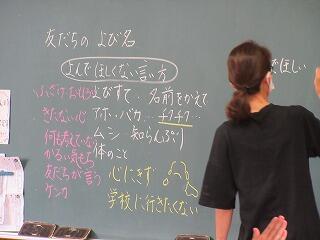 友だちの よび名
よんでほしくない言い方
ほしい
ふざけ・おもしろ よびすて、名前をかえて
きたない心 アホ、バカ… チクチク…
何も考えていない ムシ 知らんぷり
かるい気もち 体のこと
友だちが言う 心にきず
ケンカ 学校に行きたくない